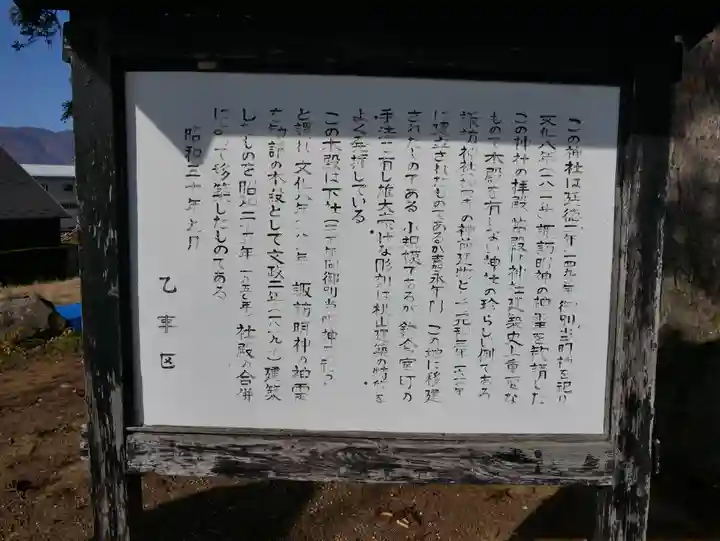 この神社は延徳二年一四九〇年御別当明神を祀り
文化八年(一八一一)諏訪明神の神霊を勧請した
この神社の拝殿 は神社建築史上重要な
もので本殿を有しない神社の珍らしい例である
諏訪神社 の神前 所として元和三年
に建立されたものであるが嘉永年間 この地に移建
されたものである 小規模であるが 鎌倉室町の
手法 有し雄大 な彫刻は桃山建築の特徴を
よく発揮している。
この本殿は下社 御別当明神
と謂れ文化八年 諏訪明神の神霊
本殿として文政二年(一八一九年)建築
したものを昭和二十 年 社殿の合併
によって移築したものである
昭和三十年 月
乙事区